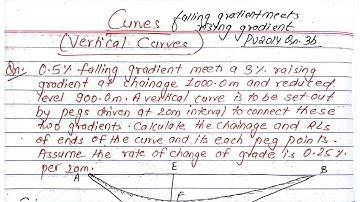 Curves falling gradient meets
rising gradient
(Vertical Curves) PU2014 Qn. 3b
Qn: 0.5% falling gradient meets a 3% raising
gradient at chainage 1000.0m and reduced
level 900.0m. A vertical curve is to be set out
by pegs driven at 20m interval to connect these
two gradients. Calculate the chainage and RLs
of ends of the curve and its each peg points.
Assume the rate of change of grade is 0.25%
per 20m.
E
A B
F